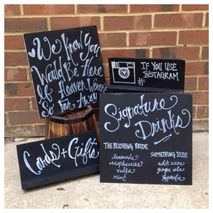 We Know You
Would Be Here
if Heaven Wasn't
So Far Away
IF YOU USE
INSTAGRAM
#
Cards + Gifts
Signature
Drinks
THE BLUSHING BRIDE
lemonade
raspberries
vodka
mint
SOMETHING BLUE